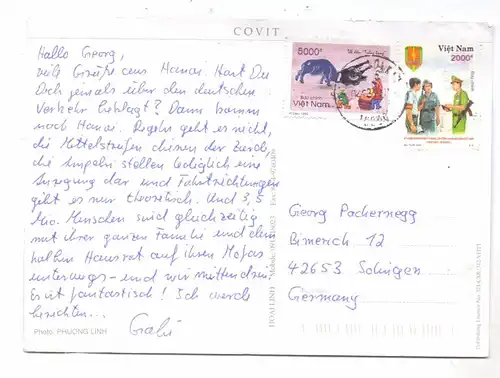 COVIT
Hallo Georg,
viele Grüße aus Hanoi. Hast Du
Dich jemals über den deutschen
Verkehr beklagt? Dann komm
nach Hanoi. Regeln gibt es nicht,
die Mittelstreifen dienen der Zierde,
die Ampeln stellen lediglich eine
Anregung dar und Fahrtrichtungen
gibt es nur theoretisch. Und 3,5
Mio. Menschen sind gleichzeitig
mit ihrer ganzen Familie und dem
halben Hausrat auf ihren Mofas
unterwegs - und wir mittendrin.
Es ist fantastisch! Ich werde
berichten...
Gabi
Photo: PHUONG LINH
5000đ
Việt Nam
Việt Nam
2000đ
Georg Pachernegg
Bimerich 12
42653 Solingen
Germany